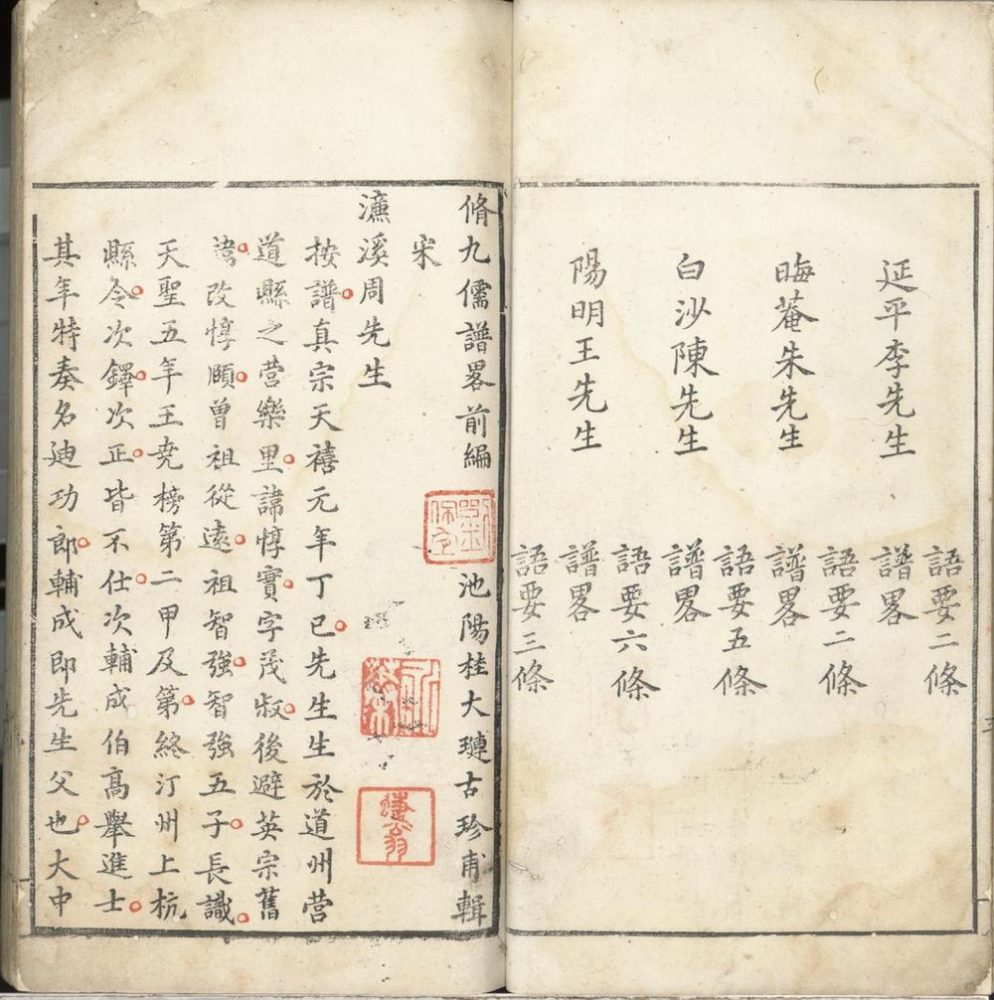 語要二條
延平李先生 譜畧
語要二條
晦菴朱先生 譜畧
語要五條
白沙陳先生 譜畧
語要六條
陽明王先生 譜畧
語要三條
脩九儒譜畧前編 池陽桂大璉古珍甫輯
宋
濂溪周先生
按譜真宗天禧元年丁巳先生生於道州營
道縣之營樂里諱惇實字茂叔後避英宗舊
諱改惇頤曾祖從遠祖智強智強五子長識
天聖五年王堯榜第二甲及第終汀州上杭
縣令次鐸次正皆不仕次輔成伯高舉進士
其年特奏名迪功郎輔成即先生父也大中